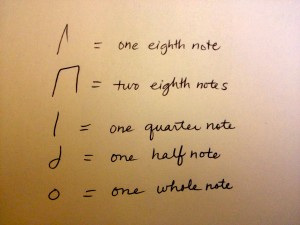 = one eighth note
= two eighth notes
= one quarter note
= one half note
= one whole note